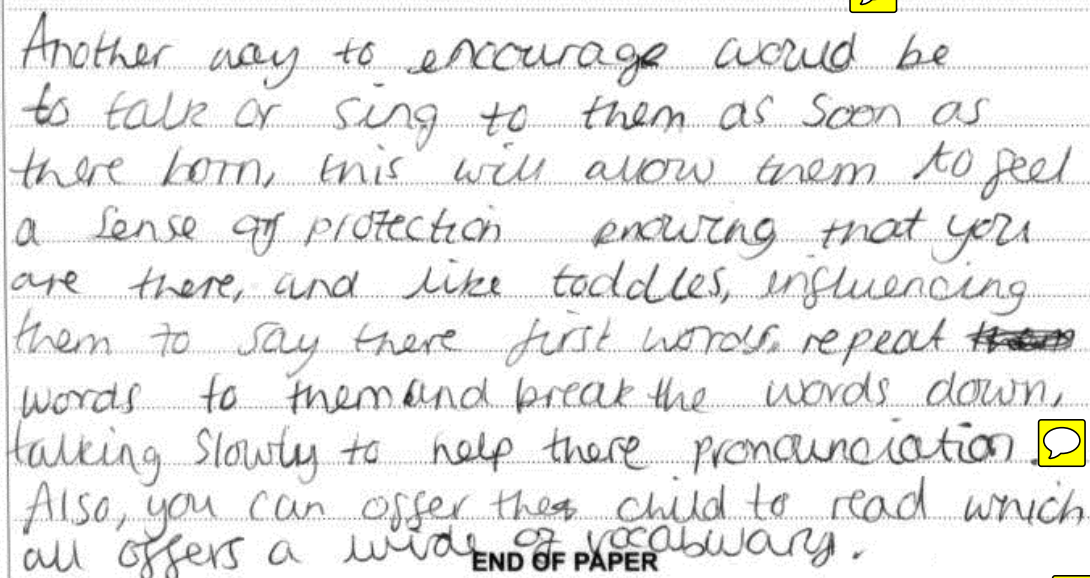 Another way to encourage would be
to talk or sing to them as soon as
there born, this will allow them to feel
a sense of protection knowing that you
are there, and like toddles, influencing
them to say there first words, repeat
words to them and break the words down,
talking slowly to help there pronounciation.
Also, you can offer the child to read which
all offers a wide of vocabulary.
END OF PAPER